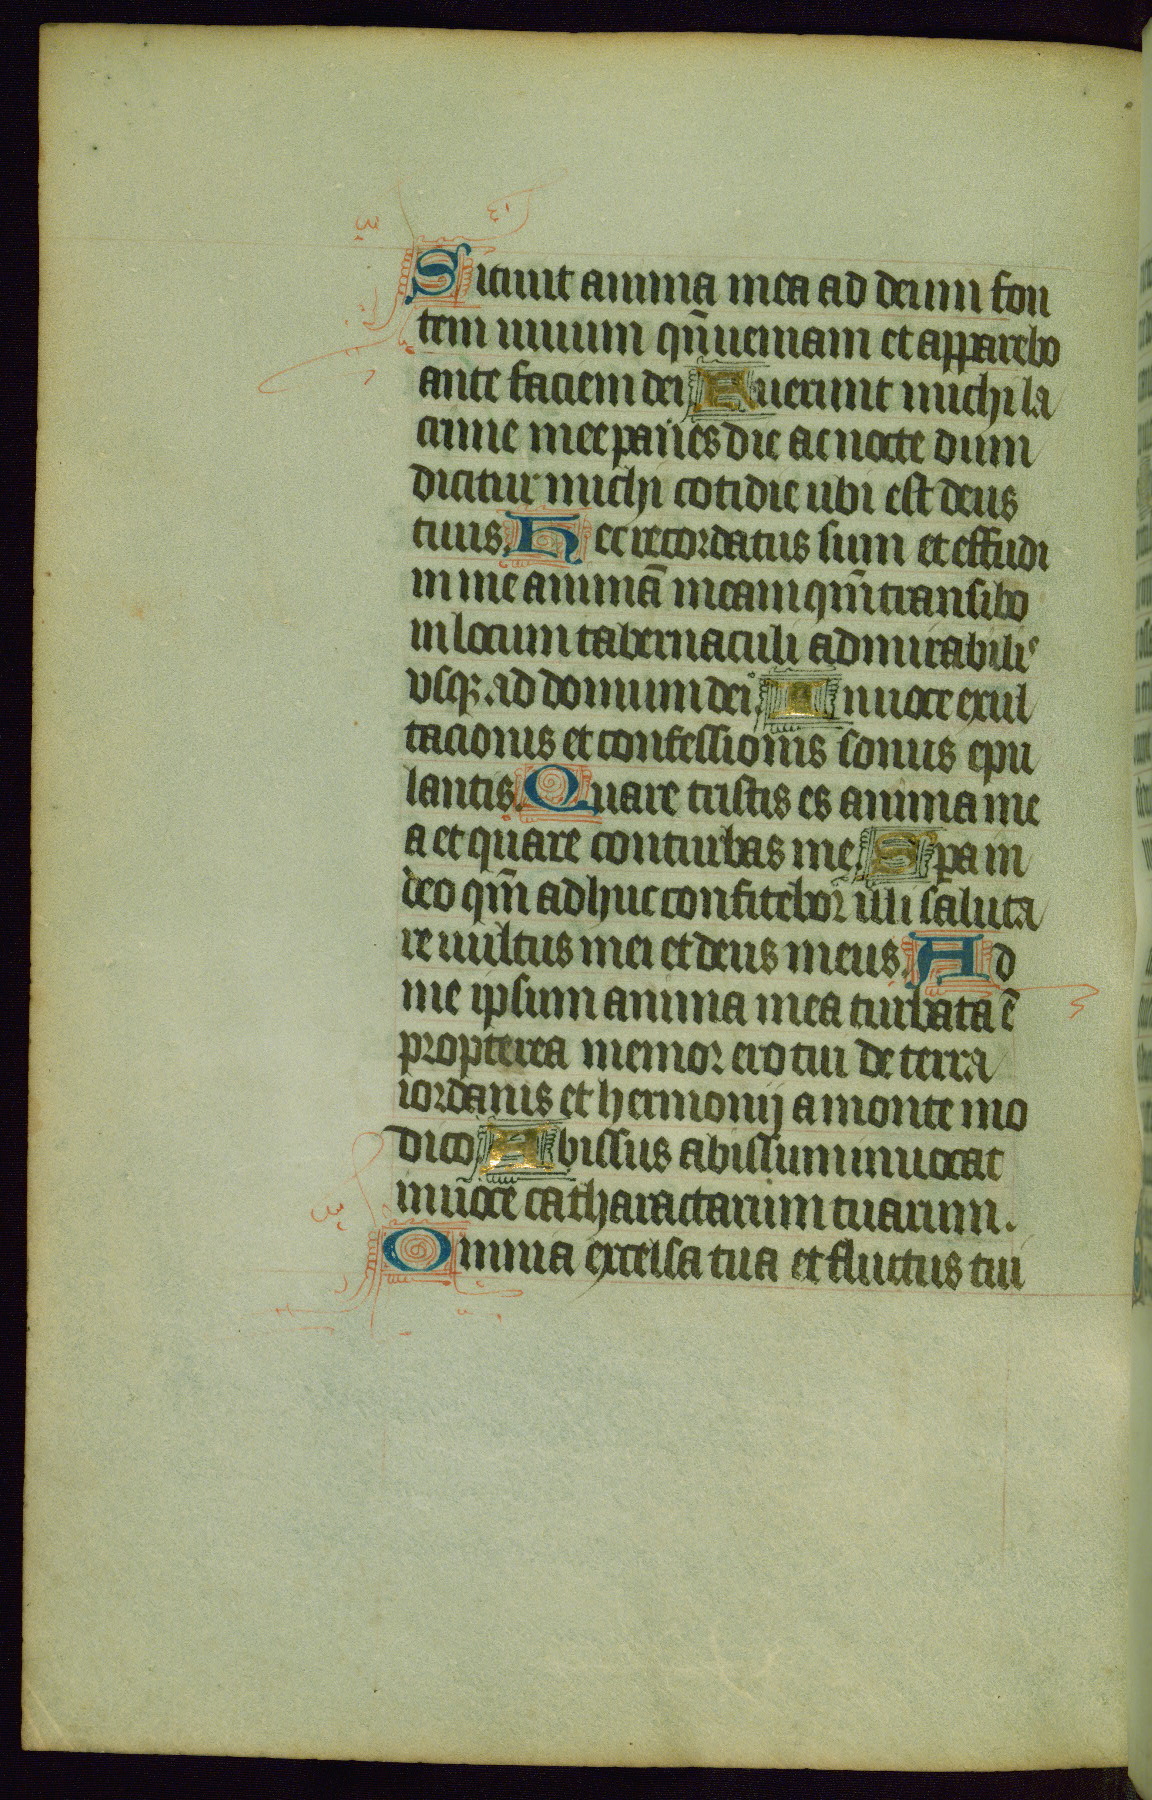 Sitiuit anima mea ad deum fon
tem uiuum qn̄ ueniam et apparebo
ante faciem dei Fuerunt michi la
crime mee panes die ac nocte dum
dicitur michi cotidie ubi est deus
tuus. Hec recordatus sum et effudi
in me animā meam qm̄ transibo
in locum tabernaculi admirabilis
vsqꝫ ad domum dei. In uoce exul
tacionis et confessionis sonus epu
lantis. Quare tristis es anima me
a et quare conturbas me. Spera in
deo qm̄ adhuc confitebor illi saluta
re uultus mei et deus meus. Ad
me ipsum anima mea turbata ē
propterea memor ero tui de terra
iordanis et hermonij a monte mo
dico Abissus abissum inuocat
in uoce catharactarum tuarum.
Omnia excelsa tua et fluctus tui